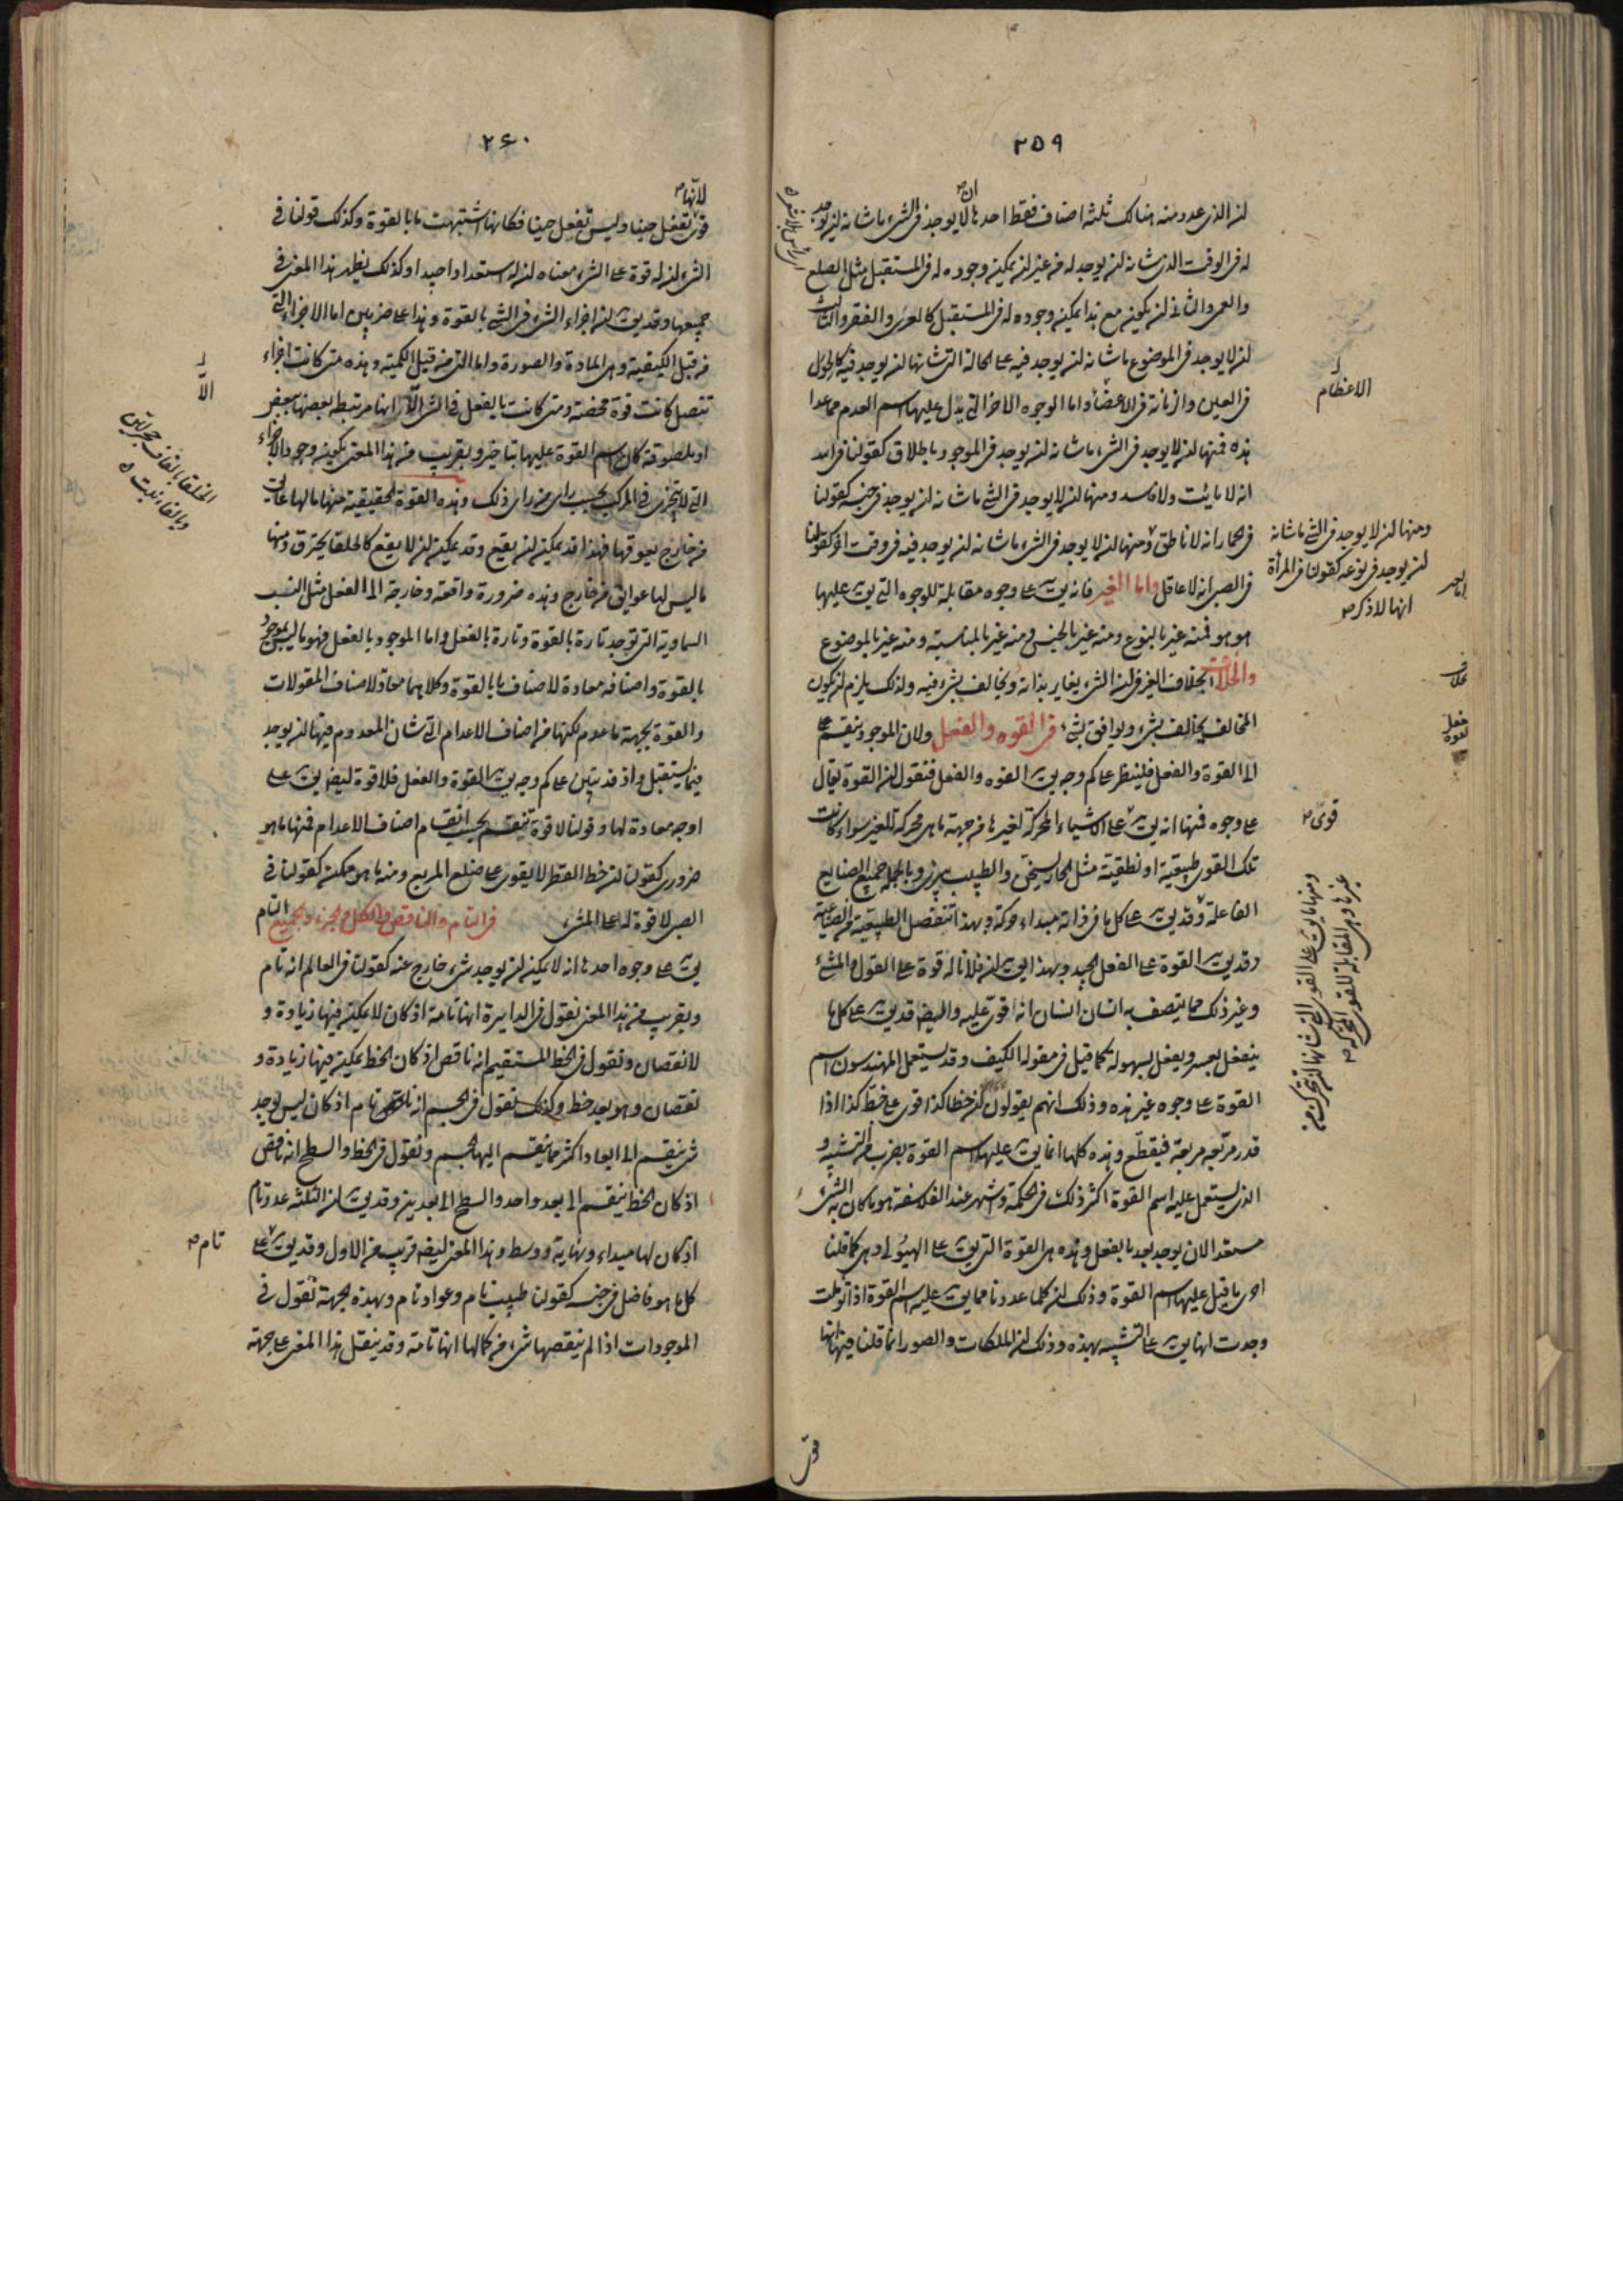 ٢٥٩
ان الذى عدد منه هنالك ثلثة اصناف فقط احدها ان لا يوجد فى الشىء ما شانه ان يوجد
له فى الوقت الذى شانه ان يوجد له من غير ان يمكن وجوده له فى المستقبل مثل الصلع
والعمى والثانى ان يكون مع هذا يمكن وجوده له فى المستقبل كالعرى والفقر والثالث
ان لا يوجد فى الموضوع ما شانه ان يوجد فيه على الحالة التى شانها ان يوجد فيه كالحول
فى العين والزمانة فى الاعضاء واما الوجوه الاخر التى يدل عليها اسم العدم مما عدا
هذه فمنها ان لا يوجد فى الشىء ما شانه ان يوجد فى الموجود باطلاق كقولنا فى الله
انه لا مائت ولا فاسد ومنها ان لا يوجد فى الشى ما شانه ان يوجد فى جنسه كقولنا
فى الحمار انه لا ناطق ومنها ان لا يوجد فى الشىء ما شانه ان يوجد فيه فى وقت اخر كقولنا
فى الصبى انه لا عاقل واما الغير فانه يق على وجوه مقابلة للوجوه التى يق عليها
هو هو فمنه غير بالنوع ومنه غير بالجنس ومنه غير بالمناسبة ومنه غير بالموضوع
والخلاف يخلاف الغير فى ان الشىء يغاير بذاته ويخالف بشىء فيه ولذلك يلزم ان يكون
المخالف يخالف بشىء ويوافق بشىء فى القوه والفعل ولان الموجود ينقسم
الى القوة والفعل فلينظر على كم وجه يق القوه والفعل فنقول ان القوة يقال
على وجوه فمنها انه يق على الاشياء المحركة لغيرها من جهة ما هى محركة للغير سواء كانت
تلك القوى طبيعية او نطقية مثل الحار يسخن والطبيب يبرىء وبالجملة جميع الصنايع
الفاعلة وقد يق على كل ما فى ذاته مبداء حركة وبهذا تنفصل الطبيعية من الصناعية
وقد يق القوة على الفعل الجيد وبهذا يق ان فلانا له قوة على القول والمشى
وغير ذلك مما يتصف به انسان انسان انه اقوى عليه وايضه قد يق على كل ما
ينفعل بعسر ويفعل بسهولة كما قيل فى مقولة الكيف وقد يستعمل المهندسون اسم
القوة على وجوه غير هذه وذلك انهم يقولون ان خطا كذا قوى على خط كذا اذا
قدر مربعه مربعه فيقطع وهذه كلها انما يق عليها اسم القوة بضرب من التشبيه و
الذى يستعمل عليه اسم القوة اكثر ذلك فى الحكمة واشهر عند الفلاسفة هو ما كان به الشىء
مستعدا لان يوجد بعد بالفعل وهذه هى القوة التى يق على الهيولى وهى كما قلنا
احرى ما قيل عليها اسم القوة وذلك ان كلما عددنا مما يق عليه اسم القوة اذا توملت
وجدت انها يق على التشبيه بهذه وذلك ان الملكات والصور انما قلنا فيها انها
قوى
الاعظام
ومنها ان لا يوجد فى الشى ما شانه
ان يوجد فى نوعه كقولنا فى المرأة
انها لا ذكر
قوى
ومنها ما يق على القوى التى شانها ان تتحرك من
غيرها وهى المقابلة للقوى المحركة
٢٦٠
لانها
قوى تفعل حينا وليس تفعل حينا فكانها اشتبهت ما بالقوة وكذلك قولنا فى
الشىء ان له قوة على الشىء معناه ان له استعدادا جيدا وكذلك يظهر هذا المعنى فى
جميعها وقد يق ان اجزاء الشىء فى الشى بالقوة وهذا على ضربين اما الاجزاء التى
من قبل الكيفية وهى المادة والصورة واما التى من قبل الكمية وهذه متى كانت اجزاء
تتصل كانت قوة محضة ومتى كانت بالفعل فى الشىء الا انها مرتبطة بعضها ببعض
او ملصوقة كان اسم القوة عليها بتاخير وبقريب من هذا المعنى يكون وجود الاجزاء
التى لا تتجزى فى المركب بحسب راى من راى ذلك وهذه القوة الحقيقية منها ما لها عائق
من خارج يعوقها فهذا قد يمكن ان يقع وقد يمكن ان لا يقع كالحلفا يحترق ومنها
ما ليس لها عوايق من خارج وهذه ضرورة واقعة وخارجة الى الفعل مثل النسب
السماوية التى توجد تارة بالقوة وتارة بالفعل واما الموجود بالفعل فهو ما ليس بموجود
بالقوة واصنافه معادة لاصناف ما بالقوة وكلاهما معاد لاصناف المقولات
والقوة بجهة ما عدم لكنها من اصناف الاعدام التى شان المعدوم فيها ان يوجد
فيما يستقبل واذ قد تبين على كم وجه يق القوة والفعل فلا قوة ايضه يق على
اوجه معادة لها وقولنا لا قوة تنقسم بحسب انقسام اصناف الاعدام فمنها ما هو
ضرورى كقولنا ان خط القطر لا يقوى على ضلع المربع ومنه ما هو ممكن كقولنا فى
الصبى لا قوة له على المشى فى التام والناقص والكل والجزء والجميع التام
يق على وجوه احدها انه لا يمكن ان يوجد شىء خارج عنه كقولنا فى العالم انه تام
وبقريب من هذا المعنى نقول فى الدايرة انها تامة اذ كان لا يمكن فيها زيادة و
لا نقصان ونقول فى الخط المستقيم انه ناقص اذ كان الخط يمكن فيها زيادة و
نقصان وهو بعد خط وكذلك نقول فى الجسم انه تام اذ كان ليس يوجد
شى ينقسم الى ابعاد اكثر مما ينقسم اليها الجسم ونقول فى الخط والسطح انه ناقص
اذ كان الخط ينقسم الى بعد واحد والسطح الى بعدين وقد يق ان الثلثة عدد تام
اذ كان لها مبداء ونهاية ووسط وهذا المعنى ايضه قريب من الاول وقد يق على
كل ما هو فاضل فى جنسه كقولنا طبيب تام وعواد تام وبهذه الجهة نقول فى
الموجودات اذا لم ينقصها شىء من كمالها انها تامة وقد ينقل هذا المعنى على جهة
الا
تام